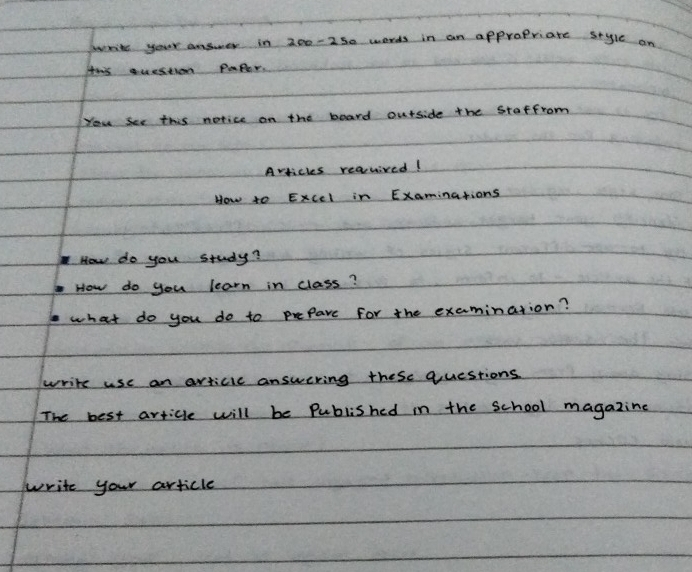 write your answer in 200-250 words in an appropriate style on
this question paper.
You see this notice on the board outside the staffrom
Articles required!
How to Excel in Examinations
▪ How do you study?
▪ How do you learn in class?
▪ what do you do to prepare for the examination?
write use an article answering these questions
The best article will be Published in the school magazine
write your article